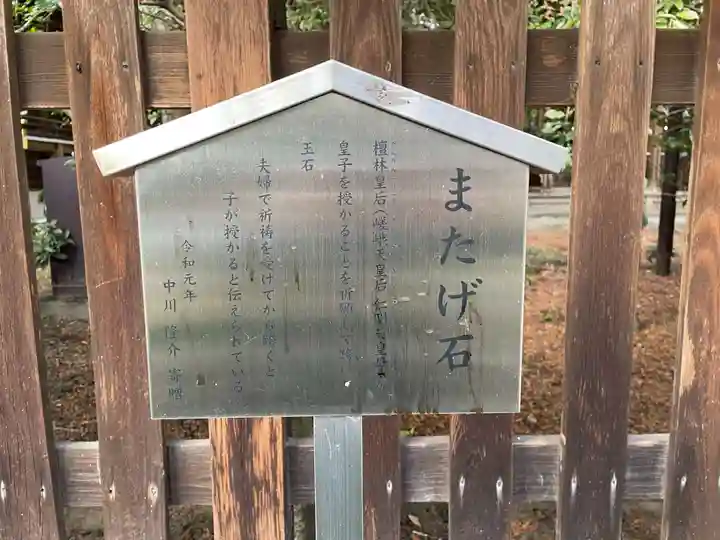 またげ石
檀林皇后(嵯峨天皇后 仁明天皇母
皇子を授かることを祈願し
玉石
夫婦で祈祷を受けてから跨ぐと
子が授かると伝えられている
令和元年
中川 隆介 寄贈